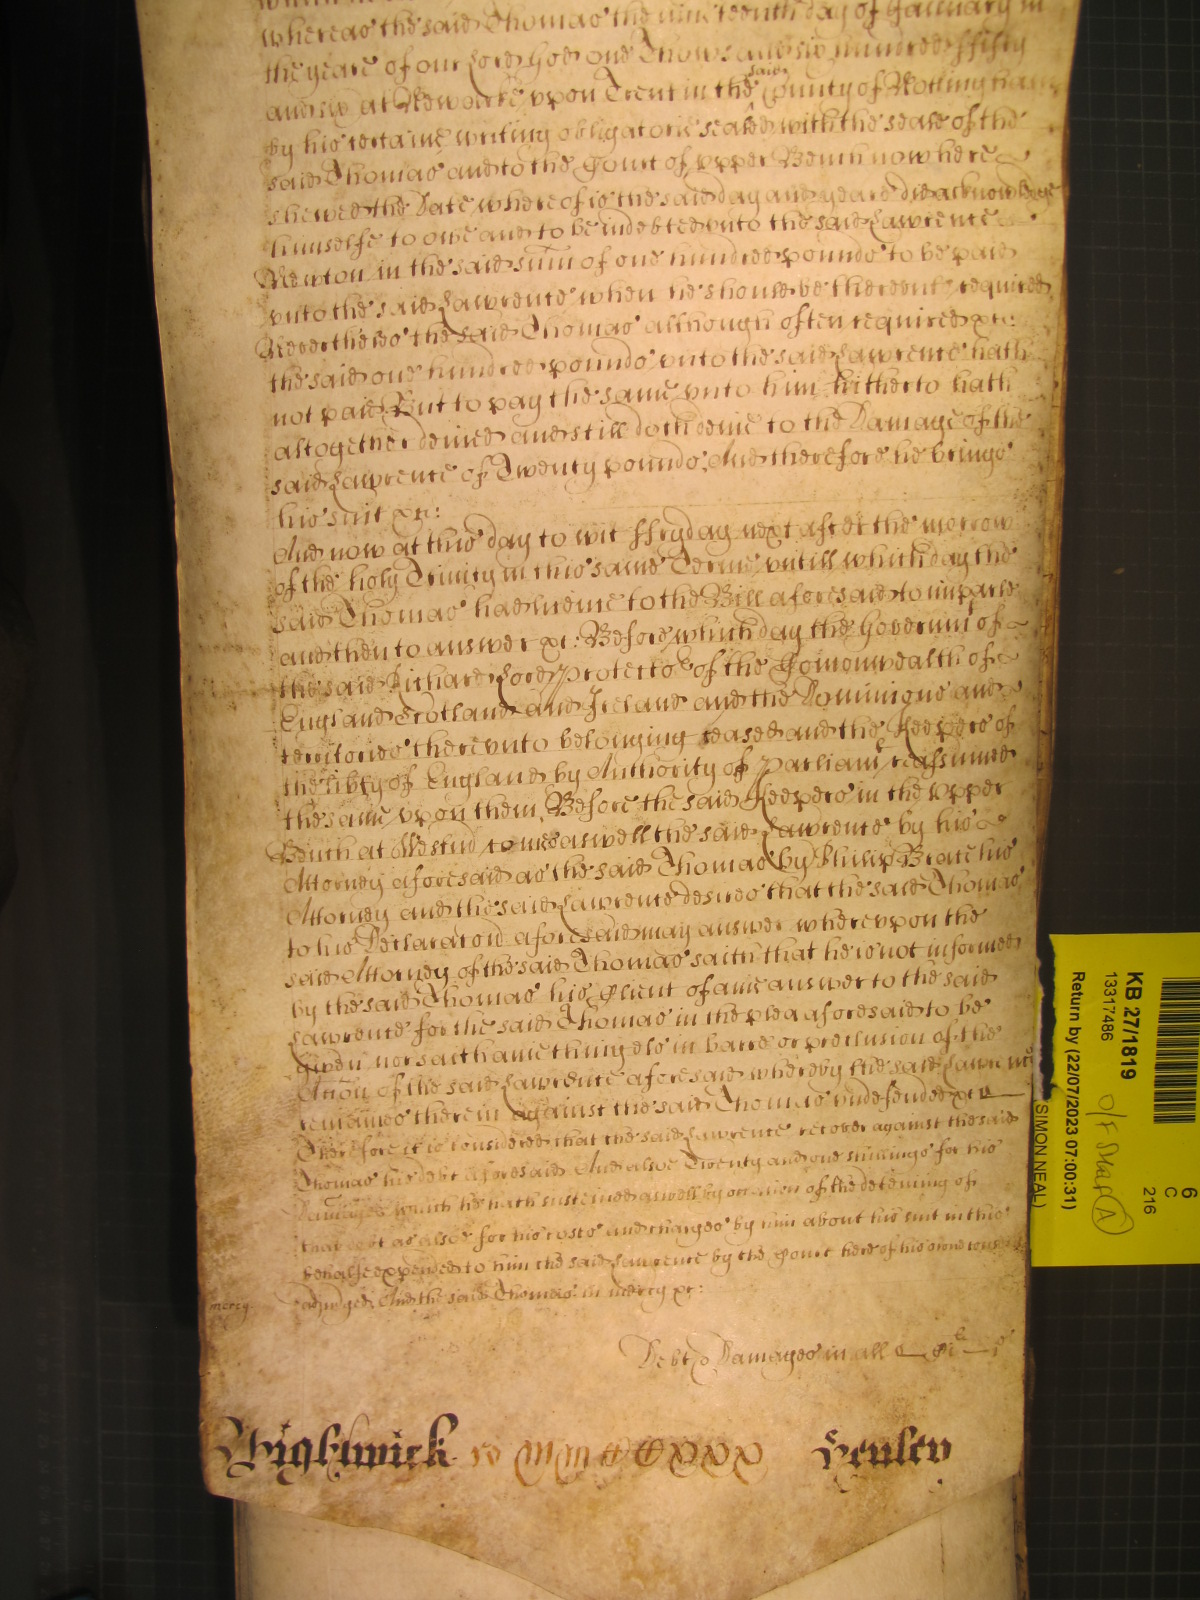 whereas the said Thomas the nineteenth day of January in
the yeare of our Lord God one Thowsand six hundred ffifty
and six at Newarke vpon Trent in the said County of Nottingham
by his certaine writing obligatorie sealed with the seale of the
said Thomas and to the Court of vpper Bench now here
shewed the Date whereof is the said day and yeare did acknowledge
himselfe to owe and to be indebted vnto the said Lawrence
Newton in the said sum of one hundred pounds to be paid
vnto the said Lawrence when he should be therevnto required
Neverthelес the said Thomas although often required &c:
the said one hundred pounds vnto the said Lawrence hath
not paid But to pay the same vnto him hitherto hath
altogether denied and still doth denie to the Damage of the
said Lawrence of Twenty pounds, And therefore he brings
his suit &c:
And now at this day to wit ffryday next after the morrow
of the holy Trinity in this same Terme vntill which day the
said Thomas had licence to the Bill aforesaid to imparle
and then to answer &c: Before which day the Goverm̄t of
the said Richard Lord Protector of the Com̄onwealth of
England Scotland and Ireland and the Dominions and
territories therevnto belonging ceased and the Keepers of
the lib̄ty of England by Authority of Parliamt reassumed
the same vpon them, Before the said Keepers in the vpper
Bench at Westm̄ comes aswell the said Lawrence by his
Attorney aforesaid as the said Thomas by Philip his
Attorney and the said Lawrence desires that the said Thomas
to his Declaraĉon aforesaid may answer wherevpon the
said Attorney of the said Thomas saith that he is not informed
by the said Thomas his Client of anie answer to the said
Lawrence for the said Thomas in the plea aforesaid to be
given nor saith anie thing els in barre or preclusion of the
Acĉon of the said Lawrence aforesaid whereby the said Lawrence
remaines therein against the said Thomas vndefended &c
Therefore it is considered that the said Lawrence recover against the said
Thomas his debt aforesaid And alsoe Twenty and one shillings for his
Damages which he hath susteined aswell by occasion of the deteining of
that debt as alsoe for his costs and charges by him about his suit in this
behalfe expended to him the said Lawrence by the Court here of his owne
mercy adjudged, And the said Thomas in mercy &c:
Debt & Damages in all
Wightwick ro
Henley
KB 27/1819
13317486
Return by (22/07/2023 07:00:31)
SIMON NEAL)
6
C
216
A